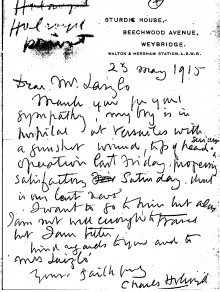 Holroyd
STURDIE HOUSE,
BEECHWOOD AVENUE,
WEYBRIDGE.
WALTON & HERSHAM STATION. L.S.W.R.
23 May 1915
Dear Mr.
Thank you for your
sympathy, my boy is in
hospital at Versailles with
a gunshot wound, top of head
operation last Friday, progressing
satisfactory Saturday that
is our last news
I want to go to him but
I am not well enough to
but I am better
kind regards to you and to
Mrs
Yours faithfully
Charles Holroyd